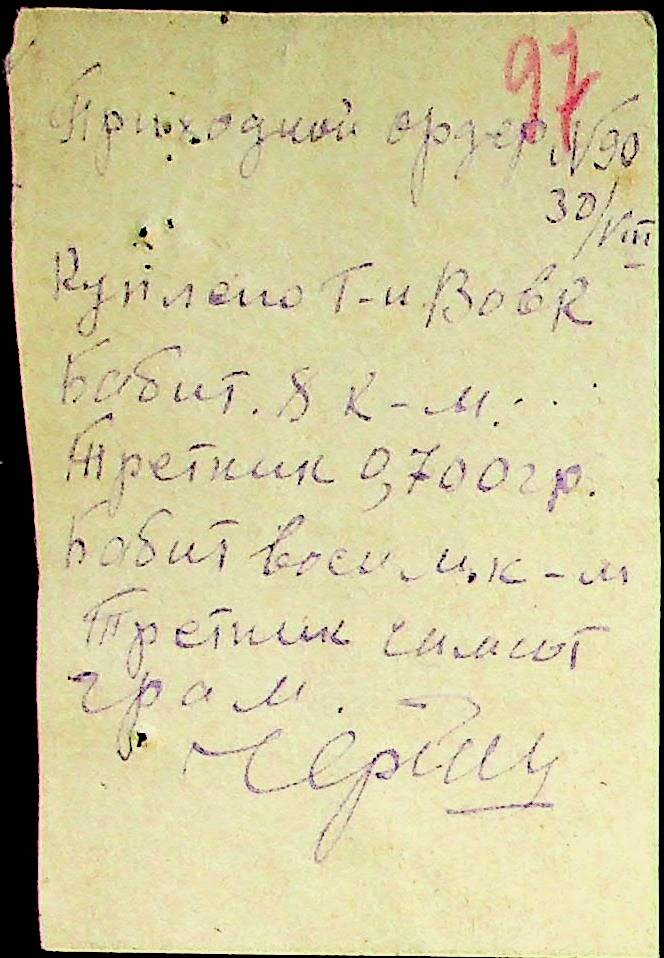 97
Приходной ордер N 90
30/VIII
Куплено Т-и Вовк
Бабит. 8 к-м...
Третник 0,700 гр.
Бабит восим к-м
Третник симсот
грам.